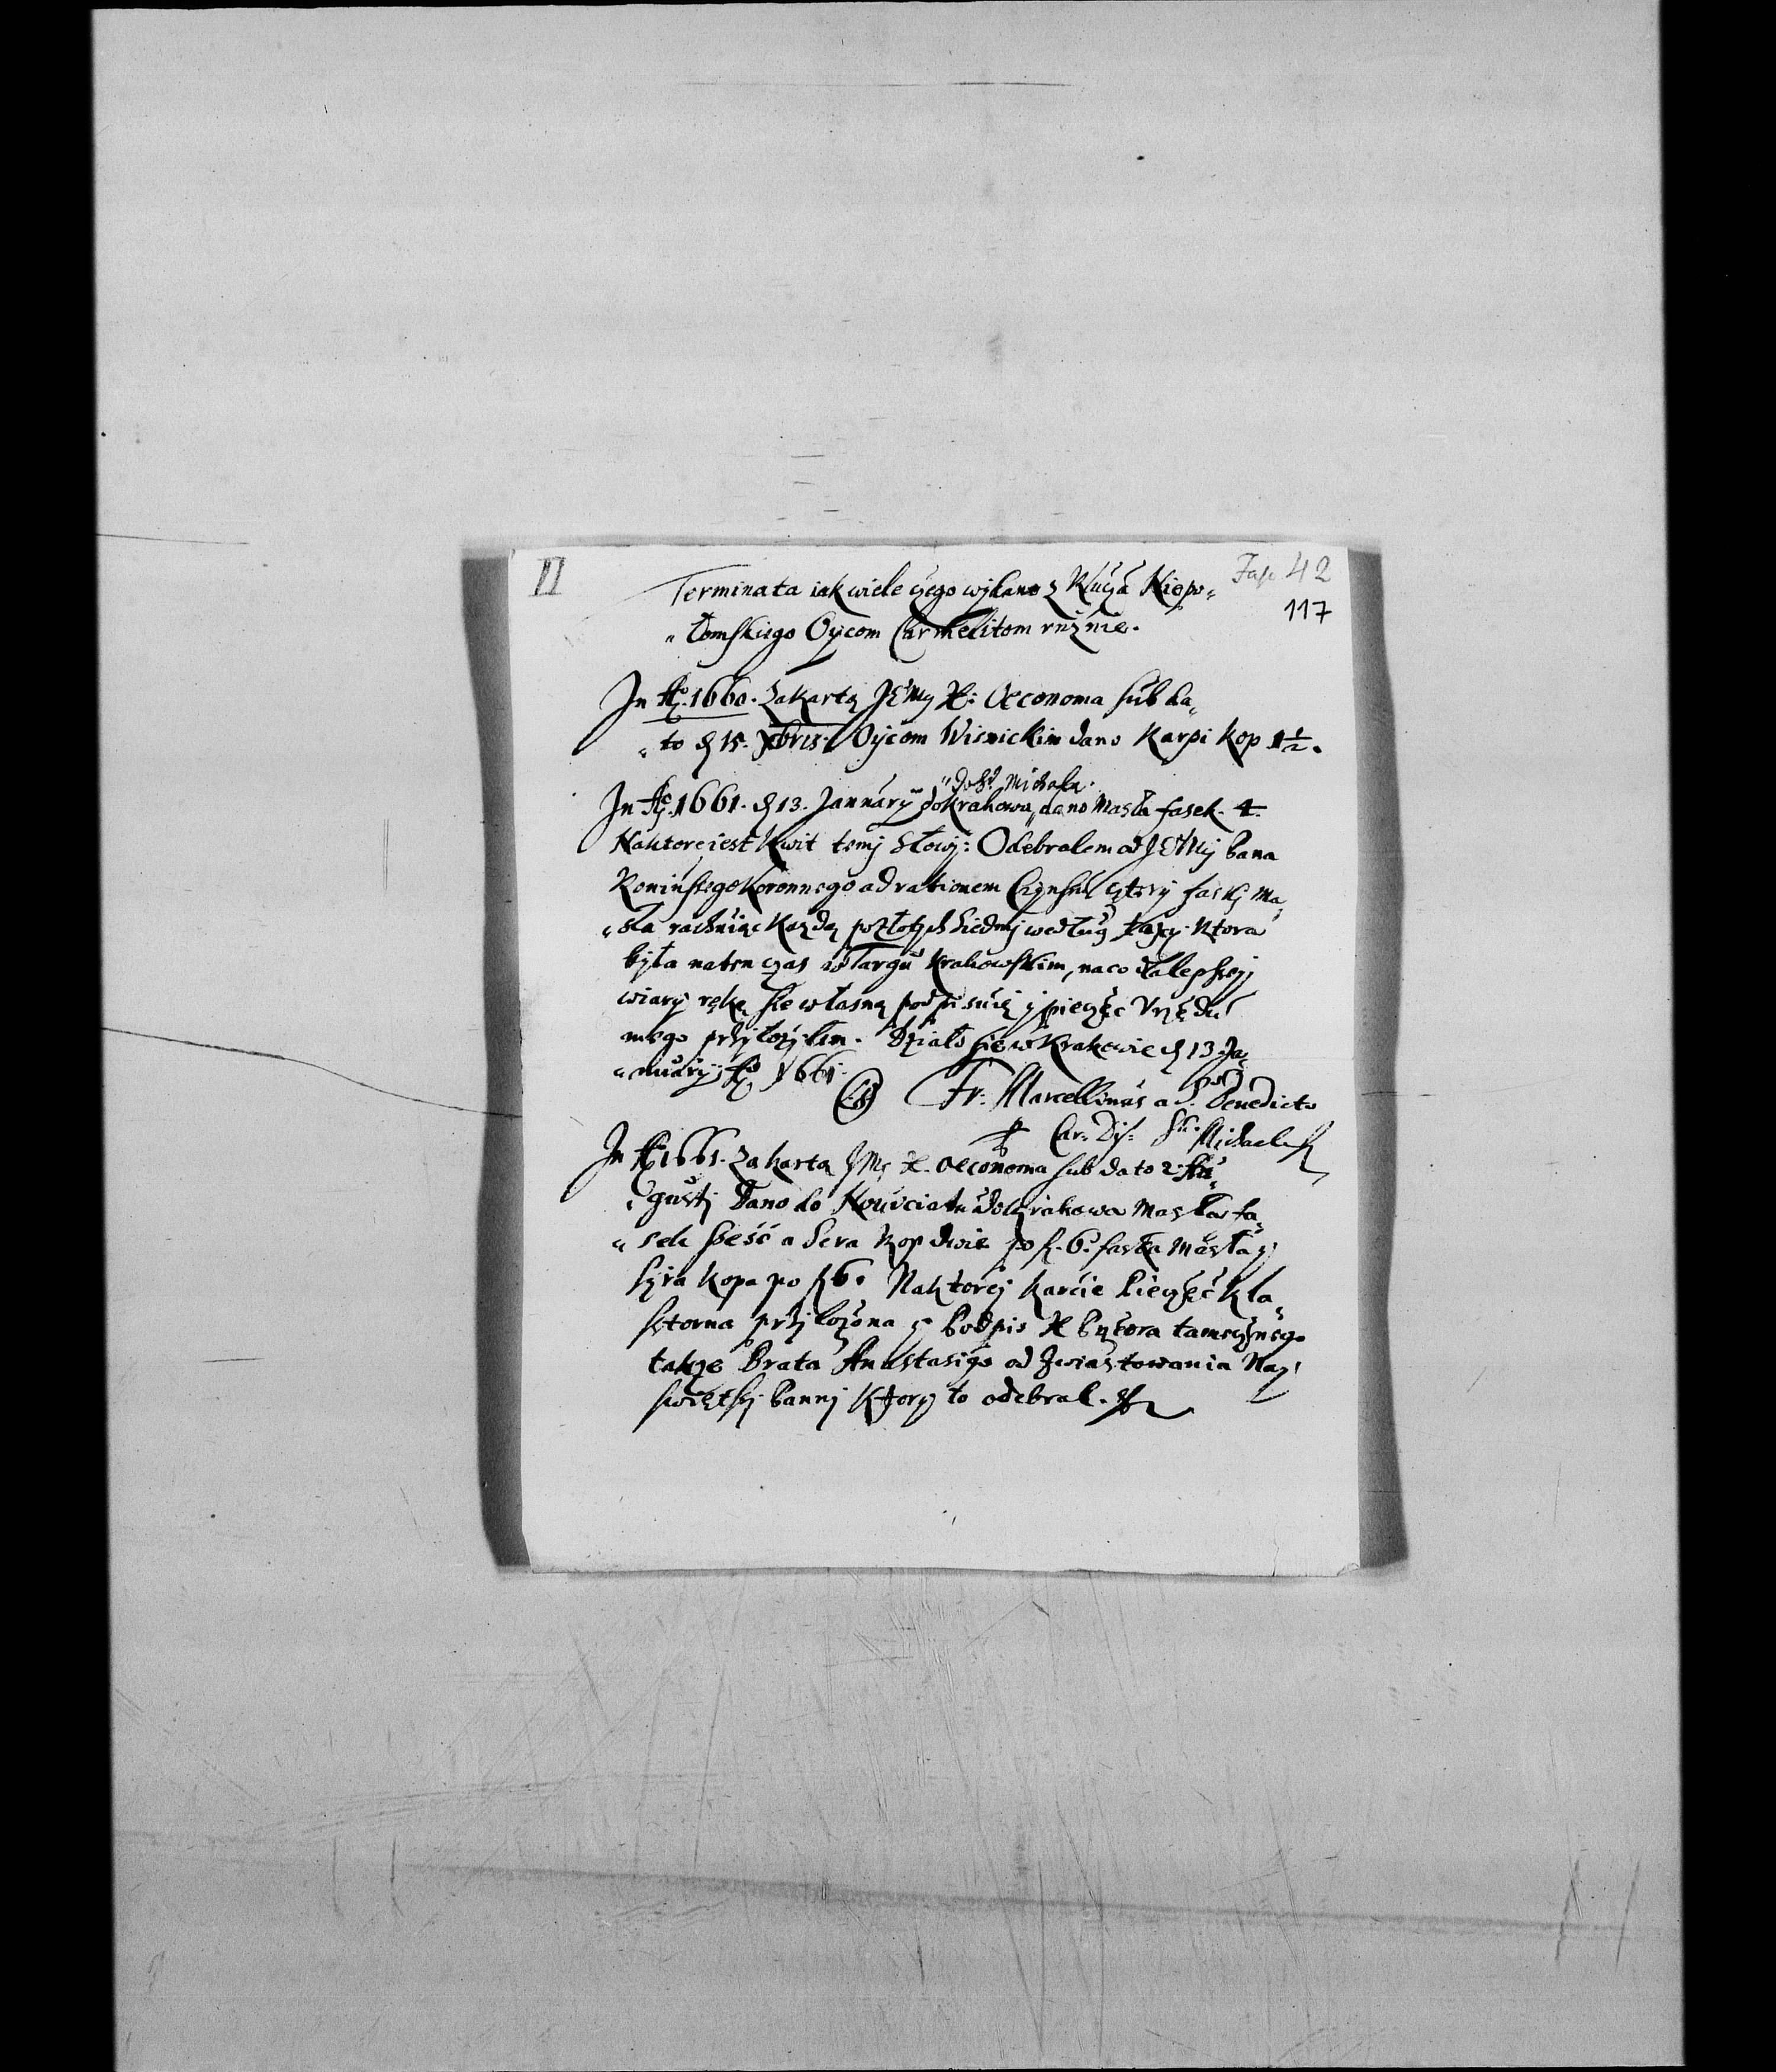 II
Fasc 42
117
Terminata iak wiele czego wydano z Klucza Niepo„
„łomskiego Oycom Carmelitom rużnie.
In Aō. 1660. Za Kartą JEoMy X: Oeconoma sub da„
„to d 15. Xbris. Oycom Wisnickim dano Karpi Kop 1½.
„Do Sō Michała.
In Aō. 1661. d 13. January do Krakowa„ dano Masła fasek. 4.
Na ktore iest Kwit temj słowj: Odebralem od JEoMcj Pana
Koniuszego Koronnego ad rationem Czynszu cztery faskj Ma„
„sła rachuiąc Kazdą po złotych siedmj według taxy. Ktora
była naten czas w Targu Krakowskim, na co dla lepszej
wiary ręką sie własną podpisuię y pieczęc Urzędu
mego przyłozyłem. Działo sie w Krakowie d 13 Ja„
„nuary Aō 1661.
(LS) Fr: Marcellinus a S. Benedicto
Car: Dis: Michaelis
In Aō 1661. Za Kartą JMc X. Oeconoma sub dato 2. Au„
„gusti Dano do Nouiciatu do Krakowa Masła fa„
„sek sześć a Sera Kop dwie po f. 6. faska Masła y
syra Kopa po f 6. Na ktorej Karcie Pieczęć Kla„
sztorna przyłozona y Podpis X Przeora tamecznego
takze Brata Anastasigo od Zwiastowania Nay
swiętszj Pannj Ktory to odebrał.